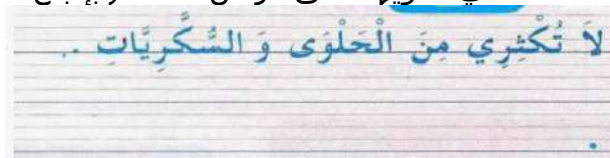 لاَ تُكْثِرِي مِنَ الْحَلْوَى وَ السُّكَّرِيَّاتِ ..
.